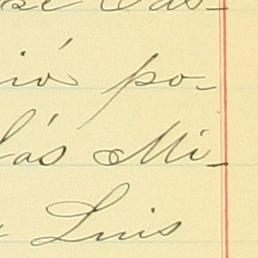 ió po-
ás Mi-
Luis